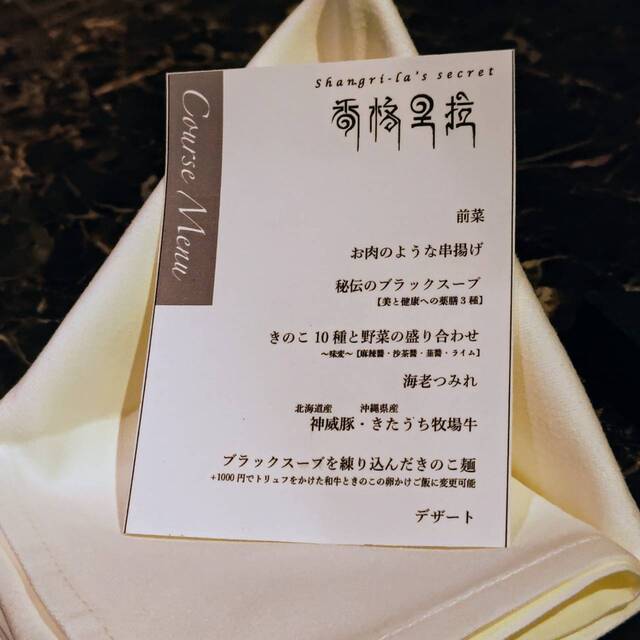 Course Menu
Shangri-la's secret
香格里拉
前菜
お肉のような串揚げ
秘伝のブラックスープ
【美と健康への薬膳3種】
きのこ10種と野菜の盛り合わせ
～味変～【麻辣醤・沙茶醤・韮醤・ライム】
海老つみれ
北海道産 沖縄県産
神威豚・きたうち牧場牛
ブラックスープを練り込んだきのこ麺
+1000円でトリュフをかけた和牛ときのこの卵かけご飯に変更可能
デザート